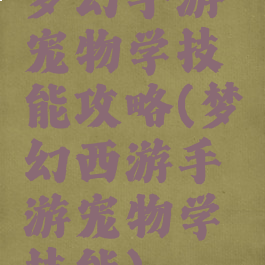 梦幻手游
宠物学技
能攻略(梦
幻西游手
游宠物学
技能)